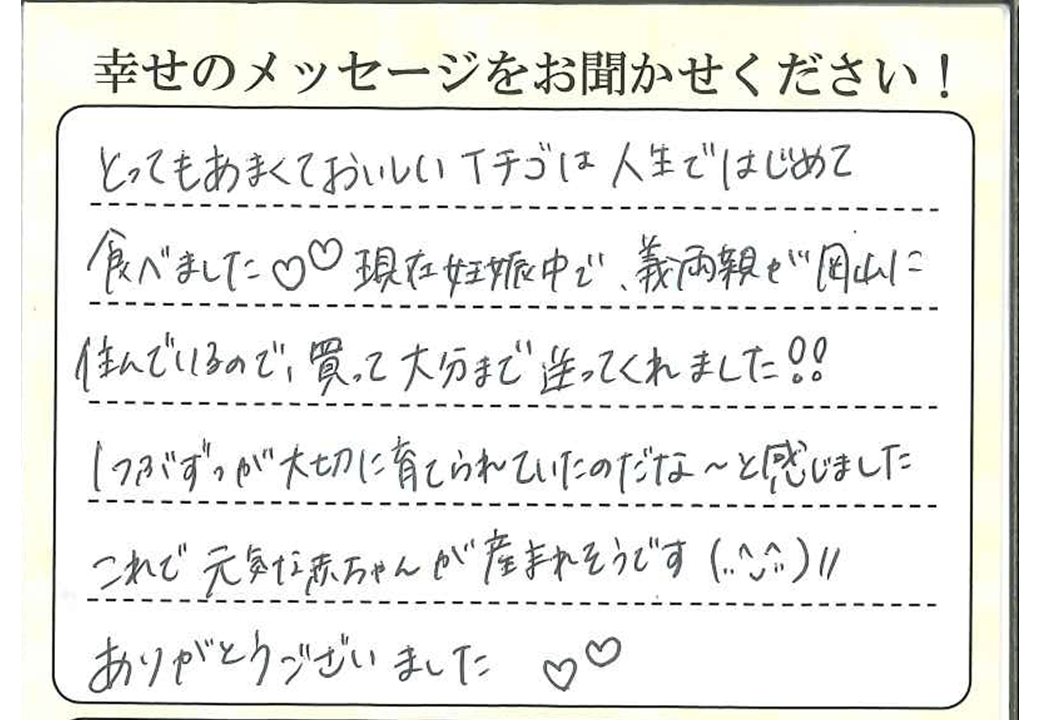 幸せのメッセージをお聞かせください！
とってもあまくておいしいイチゴは人生ではじめて
食べました♡♡現在妊娠中で、義両親が岡山に
住んでいるので、買って大分まで送ってくれました!!
1つぶずつが大切に育てられていたのだな～と感じました
これで元気な赤ちゃんが産まれそうです(^^)//
ありがとうございました ♡♡